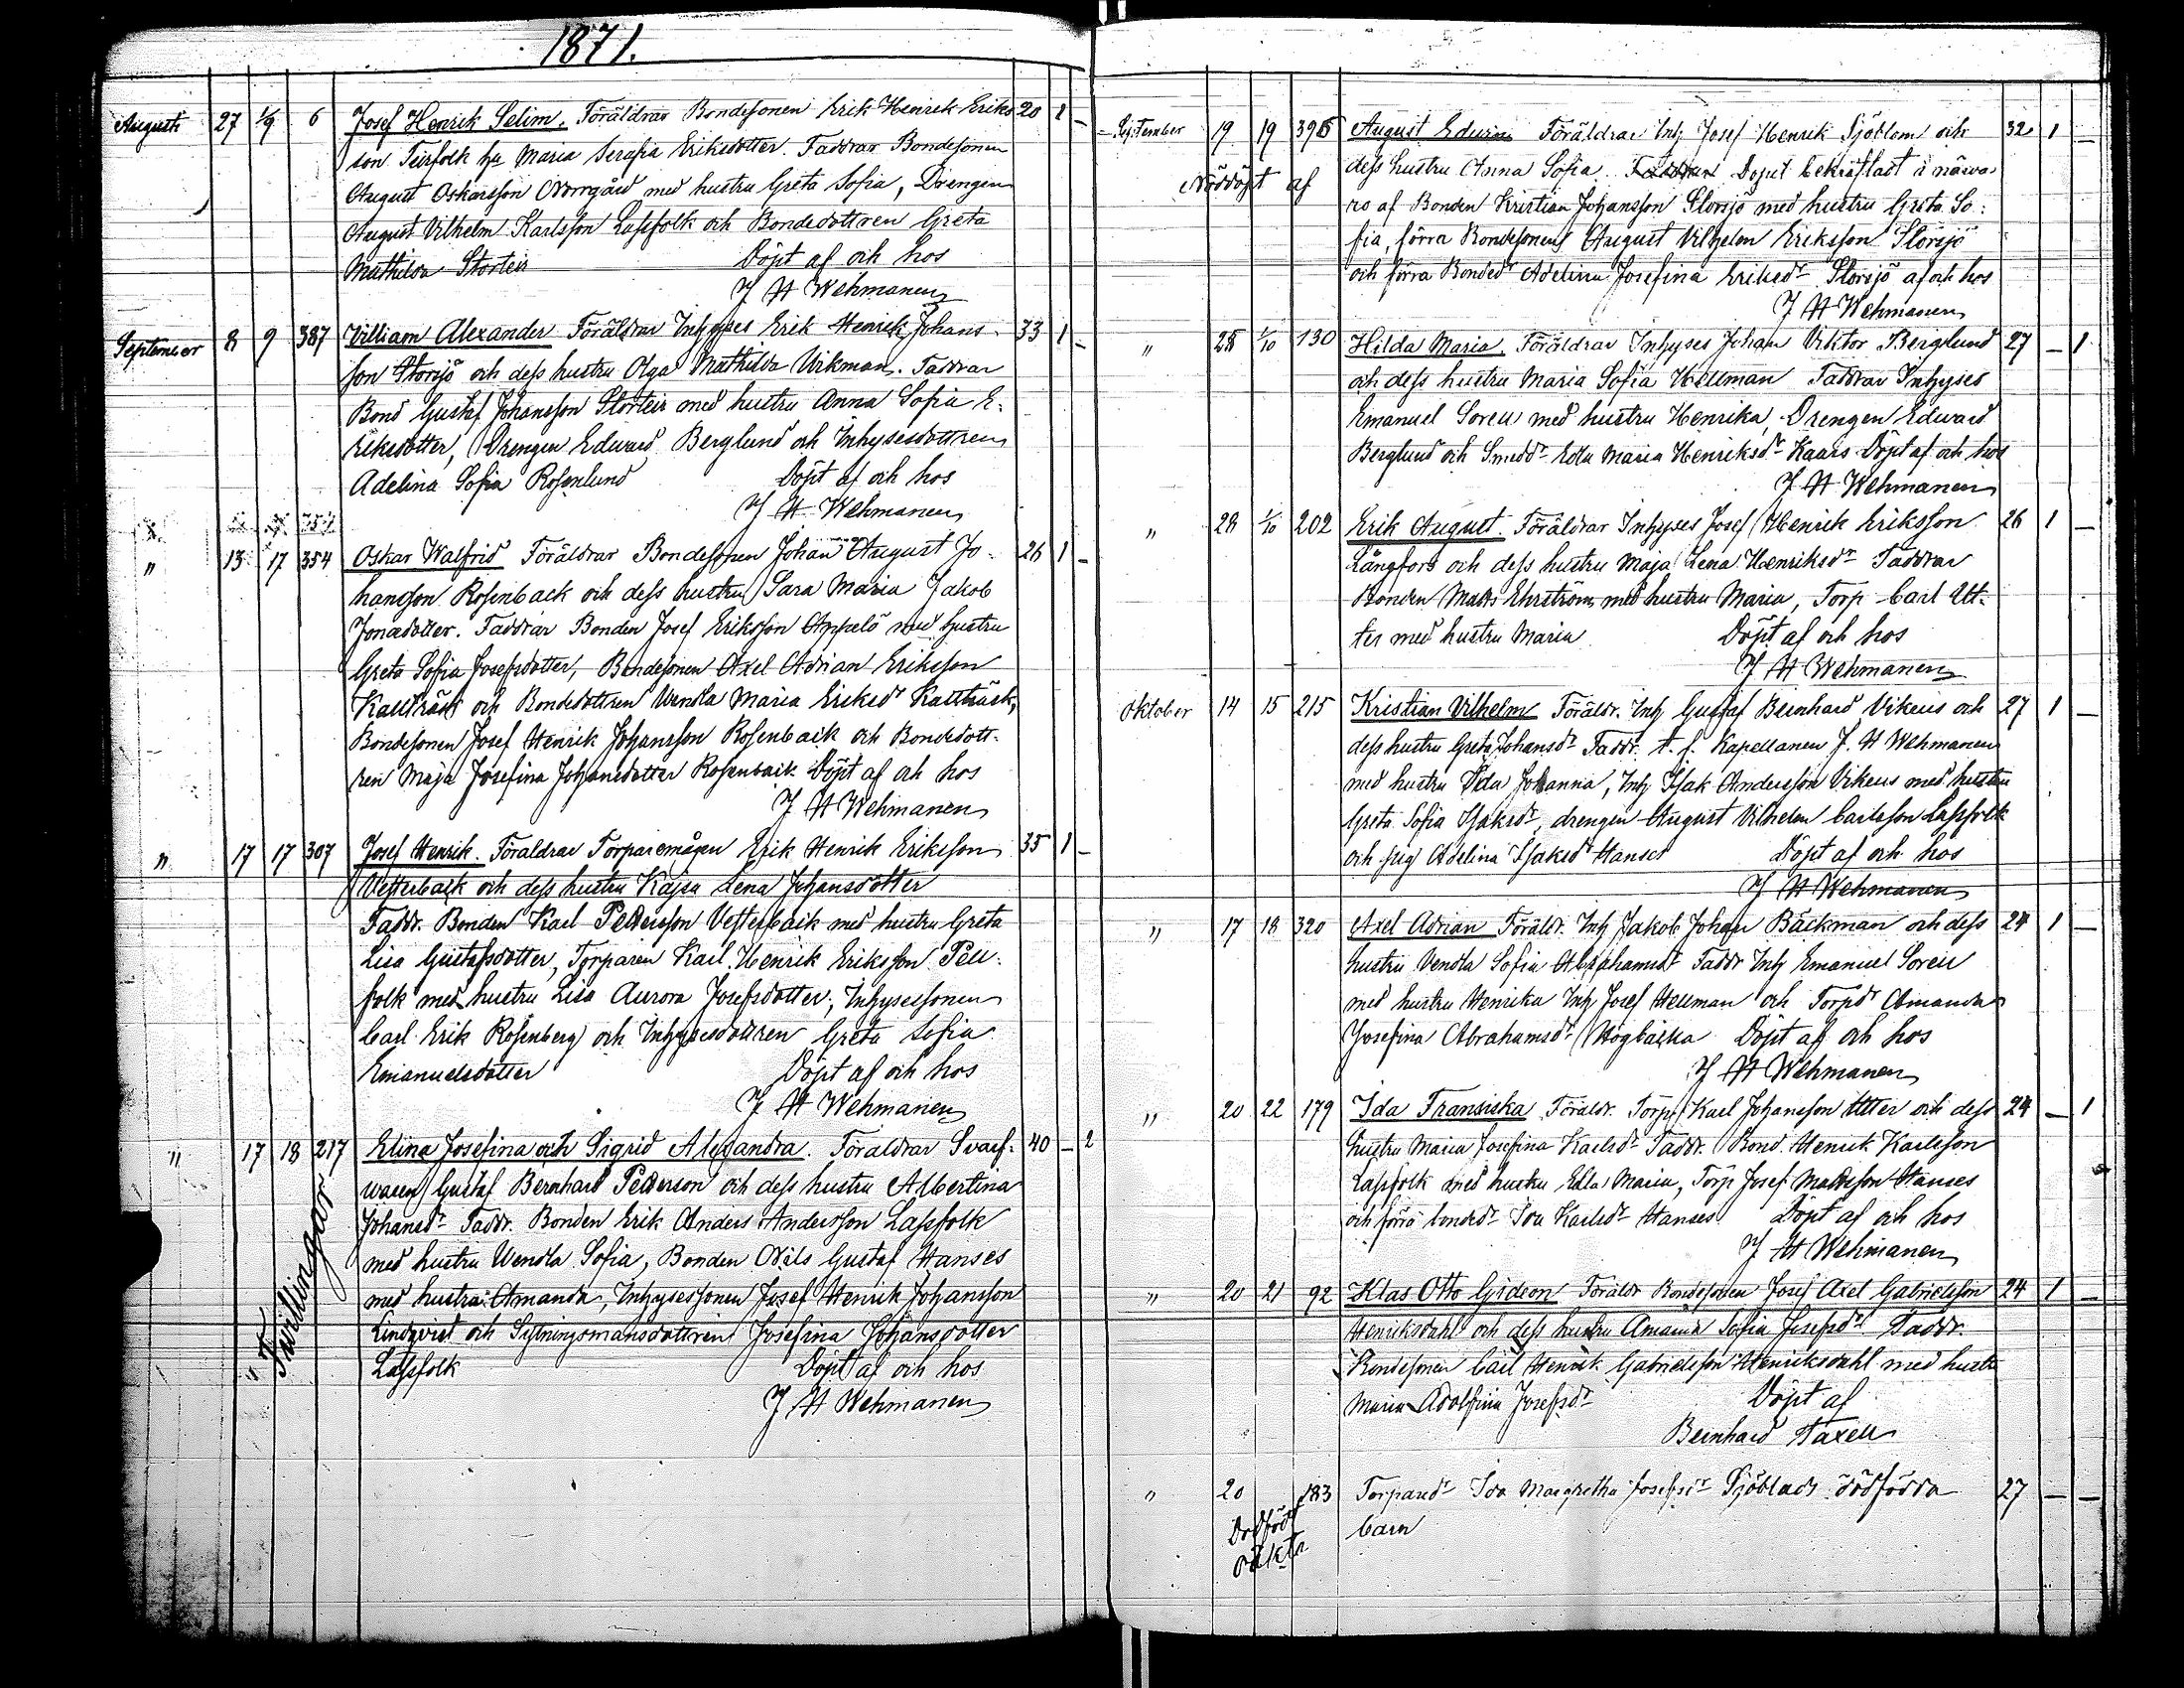 1871.
Augusti 27 1/9 6 Josef Henrik Selim. Föräldrar Bondesonen Erik Henrik Eriks 20 1 –
son Teirfolk Maria Serafia Eriksdotter. Faddrar Bondesonen
August Oskarsson Norrgård med hustru Greta Sofia, Drengen
August Vilhelm Karlsson Lassfolk och Bondedottren Greta
Mathilda Storteir Döpt af och hos
J H Wehmanen
September 8 9 387 William Alexander Föräldrar Inhyses Erik Henrik Johans- 33 1 –
son Storsjö och dess hustru Olga Mathilda Vikman. Faddrar
Bond Gustaf Johansson Storteir med hustru Anna Sofia E-
riksdotter, Drengen Edward Berglund och Inhysesdottren
Adelina Sofia Rosenlund Döpt af och hos
J H Wehmanen
" 13 17 354 Oskar Walfrid Föräldrar Bondesonen Johan August Jo- 26 1 –
hansson Rosenback och dess hustru Sara Maria Jakob
Jonædotter. Faddrar Bonden Josef Eriksson Appelö med hustru
Greta Sofia Josefsdotter, Bondesonen Axel Adrian Eriksson
Kaitträsk och Bondedottren Wendla Maria Eriksdr Kaitträsk,
Bondesonen Josef Henrik Johansson Rosenback och Bondedott-
ren Maja Josefina Johansdotter Rosenback Döpt af och hos
J H Wehmanen
" 17 17 307 Josef Henrik. Föräldrar Torparemågen Erik Henrik Eriksson 35 1 –
Vesterback och dess hustru Kajsa Lena Johansdotter
Faddr. Bonden Karl Pettersson Vesterback med hustru Greta
Lisa Gustafsdotter, Torparen Karl Henrik Eriksson Pell-
folk med hustru Lisa Aurora Josefsdotter, Inhysessonen
Carl Erik Rosenberg och Inhysesdottren Greta Sofia
Emanuelsdotter Döpt af och hos
J H Wehmanen
" 17 18 217 Elina Josefina och Sigrid Alexandra. Föräldrar Svarf- 40 – 2
waren Gustaf Bernhard Petterson och dess hustru Albertina
Johansdr Faddr. Bonden Erik Anders Andersson Lassfolk
med hustru Wendla Sofia, Bonden Nils Gustaf Hanses
med hustru Amanda, Inhysessonen Josef Henrik Johansson
Lindqvist och Sytningsmansdottren Josefina Johansdotter
Lassfolk Döpt af och hos
J H Wehmanen
" Tvillingar
September 19 19 396 August Edvin Föräldrar Inh Josef Henrik Sjöblom och 32 1 –
Nöddöpt af dess hustru Anna Sofia. Faddrar Dopet bekräftadt i närva-
ro af Bonden Kristian Johansson Storsjö med hustru Greta So-
fia, förra Bondesonen August Vilhelm Eriksson Storsjö
och förra Bondedr Adelina Josefina Eriksdr Storsjö af och hos
J H Wehmanen
" 28 1/10 130 Hilda Maria. Föräldrar Inhyses Johan Viktor Berglund 27 – 1
och dess hustru Maria Sofia Hellman Faddrar Inhyses
Emanuel Sorell med hustru Henrika, Drengen Edward
Berglund och Smeddr Edla Maria Henriksdr Kaars Döpt af och hos
J H Wehmanen
" 28 1/10 202 Erik August. Föräldrar Inhyses Josef Henrik Eriksson 26 1 –
Långfors och dess hustru Maja Lena Henriksdr Faddrar
Bonden Matts Ehrström med hustru Maria, Torp Carl Utt-
ter med hustru Maria Döpt af och hos
J H Wehmanen
Oktober 14 15 215 Kristian Vilhelm Föräldr. Inh Gustaf Bernhard Vikeus och 27 1 –
dess hustru Greta Johansdr Faddr. t. f. Kapellanen J. H Wehmanen
med hustru Ida Johanna, Inh Isak Andersson Vikeus med hustru
Greta Sofia Isaksdr, drengen August Vilhelm Carlsson Lassfolk
och pig Adelina Isaksdr Hanses Döpt af och hos
J H Wehmanen
" 17 18 320 Axel Adrian Föräldr. Inh Jakob Johan Bäckman och dess 24 1 –
hustru Vendla Sofia Abrahamsdr Faddr Inh Emanuel Sorell
med hustru Henrika Inh Josef Hellman och Torpdr Amanda
Josefina Abrahamsdr Högbacka Döpt af och hos
J H Wehmanen
" 20 22 179 Ida Fransiska Föräldr. Torp. Karl Johansson Utter och dess 24 – 1
hustru Maria Josefina Karlsdr Faddr. Bond. Henrik Karlsson
Lassfolk med hustru Edla Maria, Torp Josef Mattsson Hanses
och förra bondedr Ida Karlsdr Hanses Döpt af och hos
J H Wehmanen
" 20 21 92 Klas Otto Gideon Föräldr Bondesonen Josef Axel Gabrielsson 24 1 –
Henriksdahl och dess hustru Amanda Sofia Josefsdr Faddr.
Bondesonen Carl Henrik Gabrielsson Henriksdahl med hustru
Maria Adolfina Josefsdr Döpt af
Bernhard Taxell
" 20 183 Torparedr Ida Margretha Josefsdr Sjöblads dödfödda 27 – –
Dödfödt oäkta barn